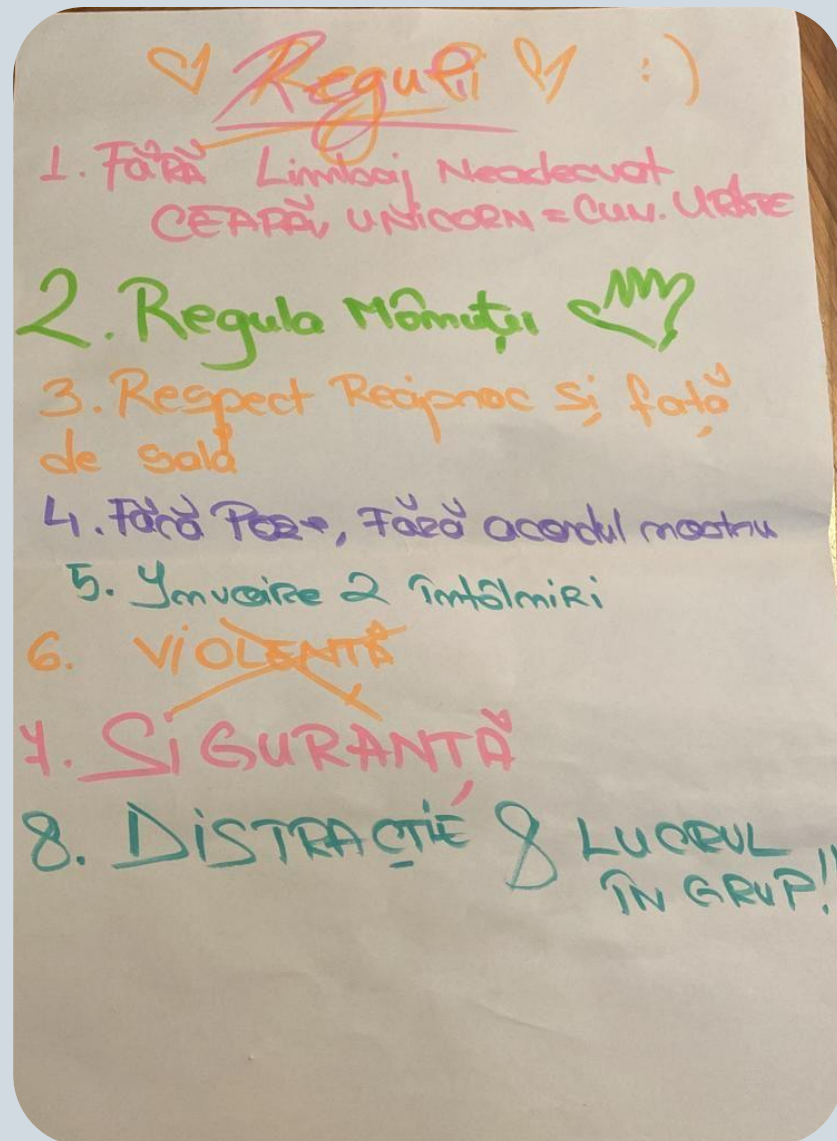 Reguli :)
1. Fără Limbaj Neadecvat
CEAPĂ, UNICORN = CUV. URÂTE
2. Regula Mânuței
3. Respect Reciproc și față
de sală
4. Fără Poze, Fără acordul nostru
5. Învoire 2 întâlniri
6. VIOLENTĂ
7. SIGURANȚĂ
8. DISTRACȚIE & LUCRUL
ÎN GRUP!!